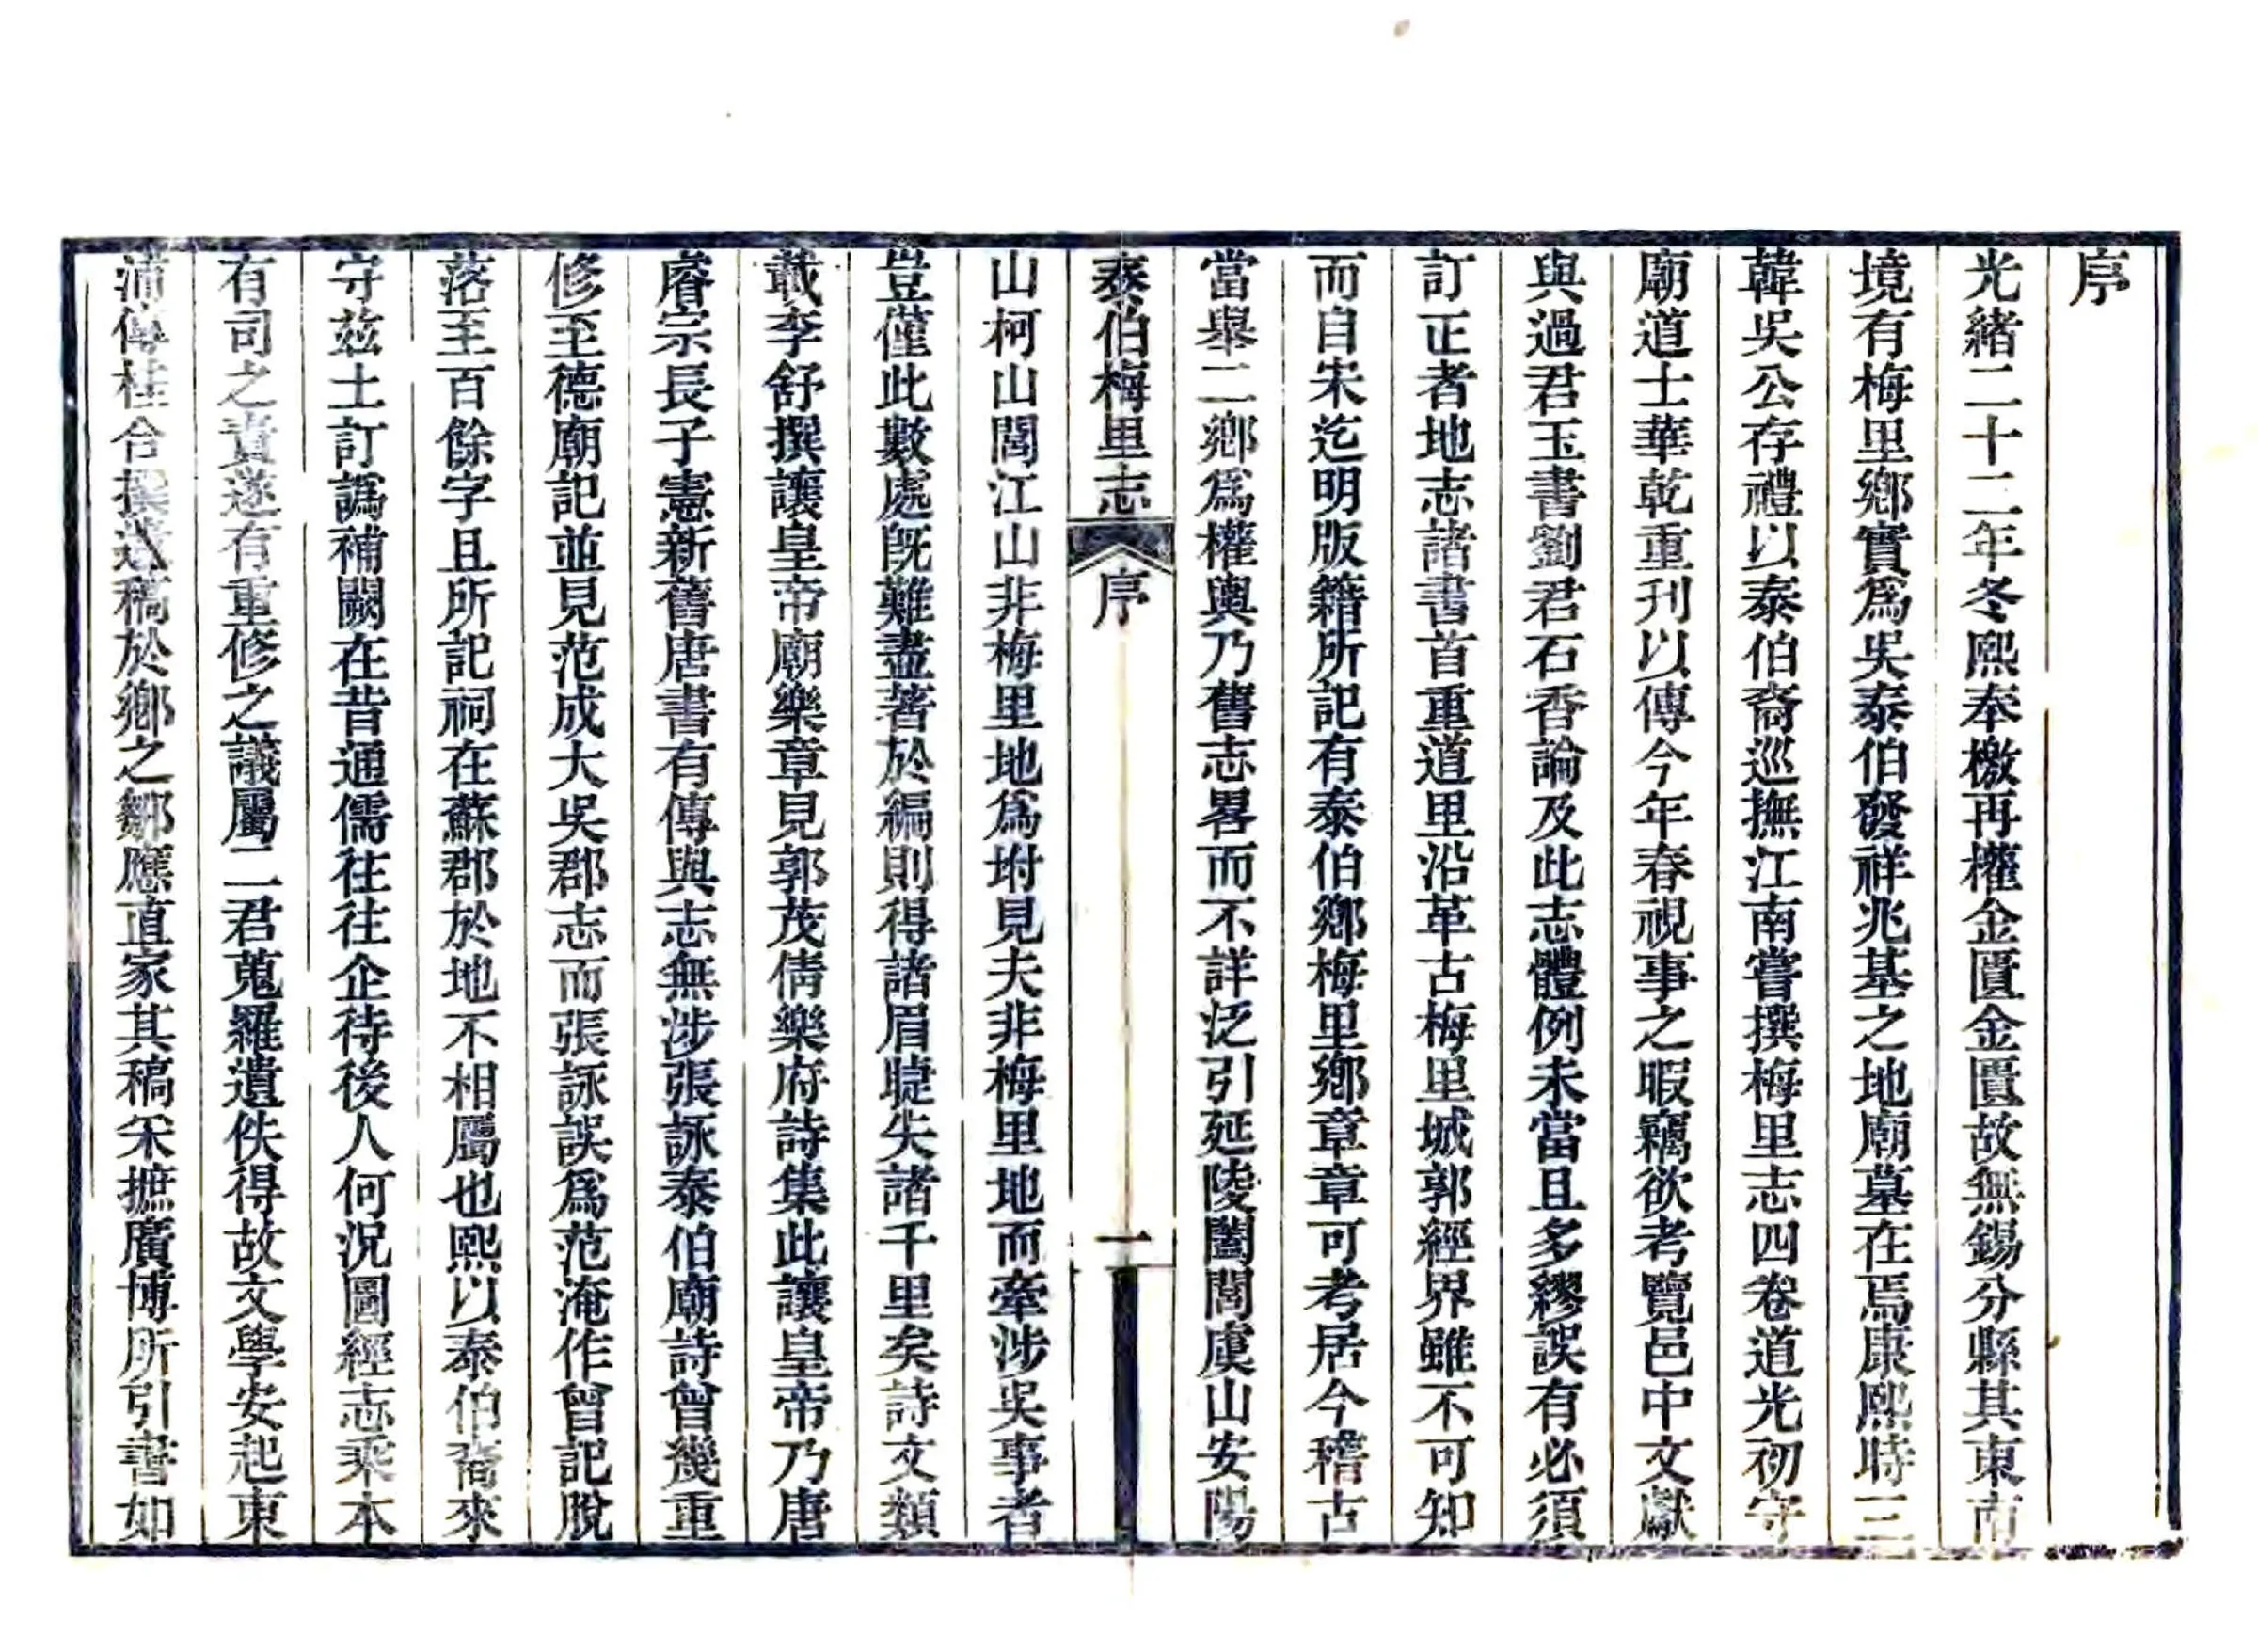 序
光緒二十二年冬熙奉檄再權金匱金匱故無錫分縣其東南
境有梅里鄉實爲吳泰伯發祥兆基之地廟墓在焉康熙時三
韓吳公存禮以泰伯裔巡撫江南嘗撰梅里志四卷道光初守
廟道士華乾重刊以傳今年春視事之暇竊欲考覽邑中文獻
與過君玉書劉君石香論及此志體例未當且多繆誤有必須
訂正者地志諸書首重道里沿革古梅里城郭經界雖不可知
而自宋迄明版籍所記有泰伯鄉梅里鄉章章可考居今稽古
當舉二鄉爲權輿乃舊志畧而不詳泛引延陵闔閭虞山安陽
泰伯梅里志 序 一
山柯山閭江山非梅里地爲坿見夫非梅里地而牽涉吳事者
豈僅此數處既難盡著於編則得諸眉睫失諸千里矣詩文類
載李舒撰讓皇帝廟樂章見郭茂倩樂府詩集此讓皇帝乃唐
睿宗長子憲新舊唐書有傳與志無涉張詠泰伯廟詩曾幾重
修至德廟記並見范成大吳郡志而張詠誤爲范淹作曾記脫
落至百餘字且所記祠在蘇郡於地不相屬也熙以泰伯裔來
守茲土訂譌補闕在昔通儒往往企待後人何況圖經志乘本
有司之責遂有重修之議屬二君蒐羅遺佚得故文學安起東
浦傳桂合撰志稿於鄉之鄒應直家其稿宋摭廣博所引書如